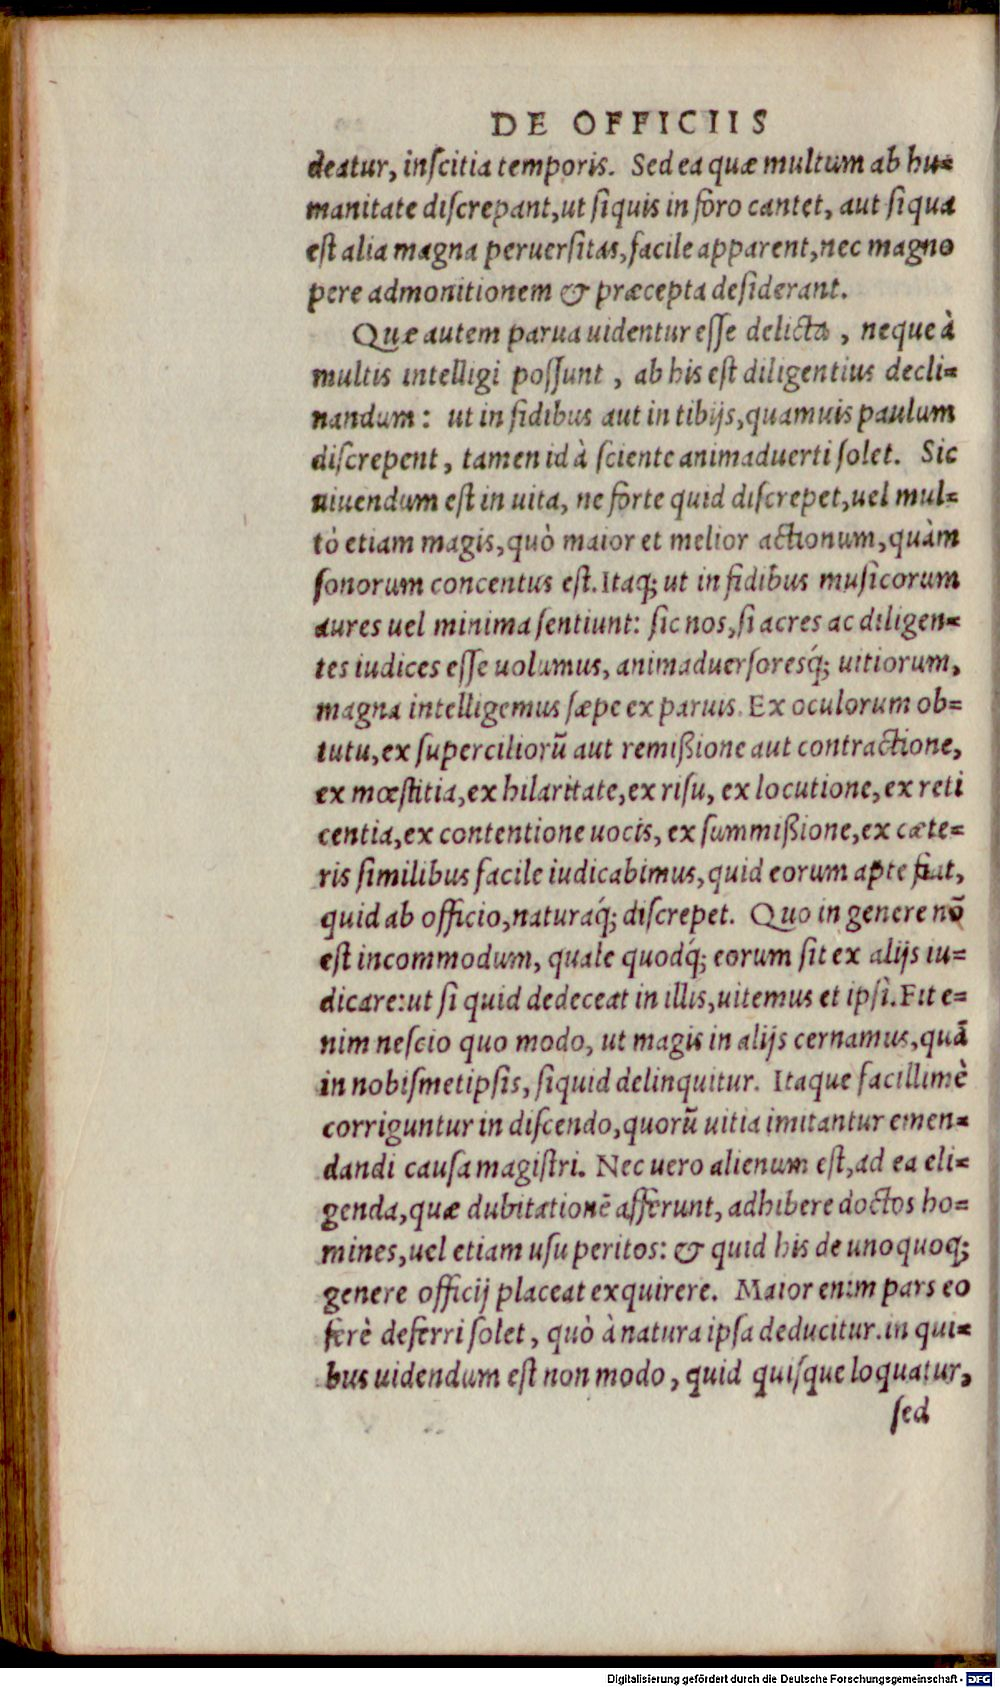 DE OFFICIIS
deatur, inſcitia temporis. Sed ea quæ multum ab hu=
manitate diſcrepant, ut ſi quis in foro cantet, aut ſi qua
eſt alia magna peruerſitas, facile apparent, nec magno
pere admonitionem & præcepta deſiderant.
Quæ autem parua uidentur eſſe delicta, neque à
multis intelligi poſſunt, ab his eſt diligentius decli=
nandum: ut in fidibus aut in tibijs, quamuis paulum
diſcrepent, tamen id à ſciente animaduerti ſolet. Sic
uiuendum eſt in uita, ne forte quid diſcrepet, uel mul=
tò etiam magis, quò maior et melior actionum, quàm
ſonorum concentus eſt. Itaq; ut in fidibus muſicorum
aures uel minima ſentiunt: ſic nos, ſi acres ac diligen=
tes iudices eſſe uolumus, animaduerſoresq́; uitiorum,
magna intelligemus ſæpe ex paruis. Ex oculorum ob=
tutu, ex ſuperciliorũ aut remißione aut contractione,
ex mœſtitia, ex hilaritate, ex riſu, ex locutione, ex reti
centia, ex contentione uocis, ex ſummißione, ex cæte=
ris ſimilibus facile iudicabimus, quid eorum apte fiat,
quid ab officio, naturaq́; diſcrepet. Quo in genere nõ
eſt incommodum, quale quodq́; eorum ſit ex alijs iu=
dicare: ut ſi quid dedeceat in illis, uitemus et ipſi. Fit e=
nim neſcio quo modo, ut magis in alijs cernamus, quã
in nobiſmetipſis, ſiquid delinquitur. Itaque facillimè
corriguntur in diſcendo, quorũ uitia imitantur emen=
dandi cauſa magiſtri. Nec uero alienum eſt, ad ea eli=
genda, quæ dubitationẽ afferunt, adhibere doctos ho=
mines, uel etiam uſu peritos: & quid his de unoquoq;
genere officij placeat exquirere. Maior enim pars eo
ferè deferri ſolet, quò à natura ipſa deducitur. in qui=
bus uidendum eſt non modo, quid quiſque loquatur,
ſed
Digitalisierung gefördert durch die Deutsche Forschungsgemeinschaft - DFG